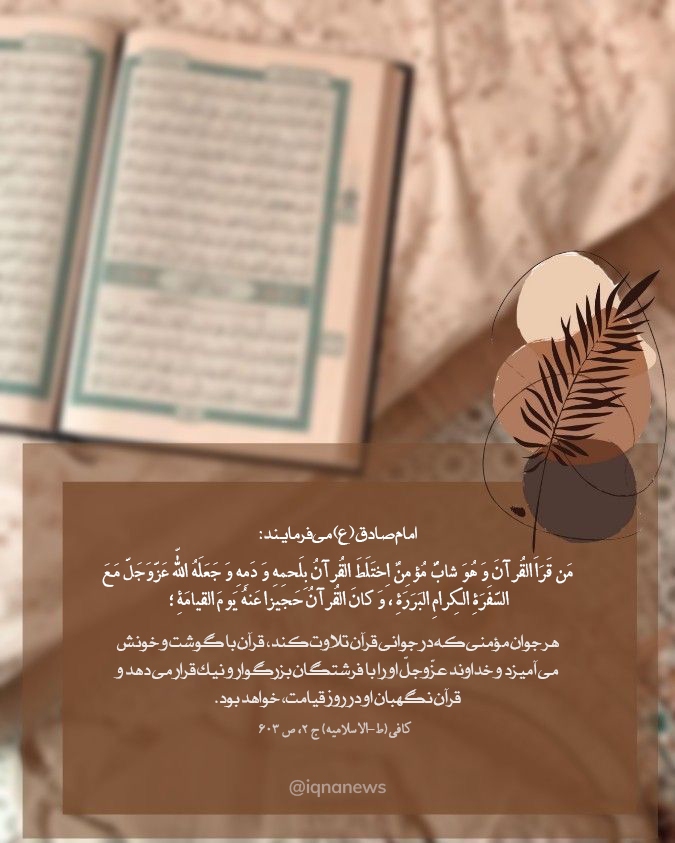 امام صادق (ع) می‌فرمایند:
مَن قَرَأَ القُرآنَ وَ هُوَ شابٌ مُؤمِنٌ اِختَلَطَ القُرآنُ بِلَحمِهِ وَ دَمِهِ وَ جَعَلَهُ اللّهُ عَزّوَجَلّ مَعَ
السَّفَرَةِ الكِرامِ البَرَرَةِ ، وَ كانَ القُرآنُ حَجيزا عَنهُ يَومَ القيامَةِ ؛
هر جوان مؤمنی که در جوانی قرآن تلاوت کند، قرآن با گوشت و خونش
می‌آمیزد و خداوند عزّوجلّ او را با فرشتگان بزرگوار و نیك قرار می‌دهد و
قرآن نگهبان او در روز قیامت، خواهد بود.
کافی (ط-الاسلامیه) ج ۲، ص ۶۰۳
@iqnanews